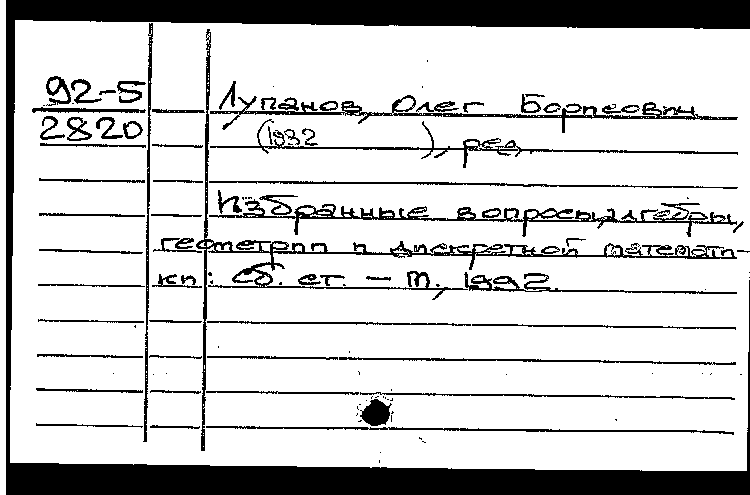 92-5
2820
Лупанов, Олег Борисович
(1932 ), ред.
Избранные вопросы алгебры,
геометрии и дискретной математи-
ки: Сб. ст. - М., 1992.